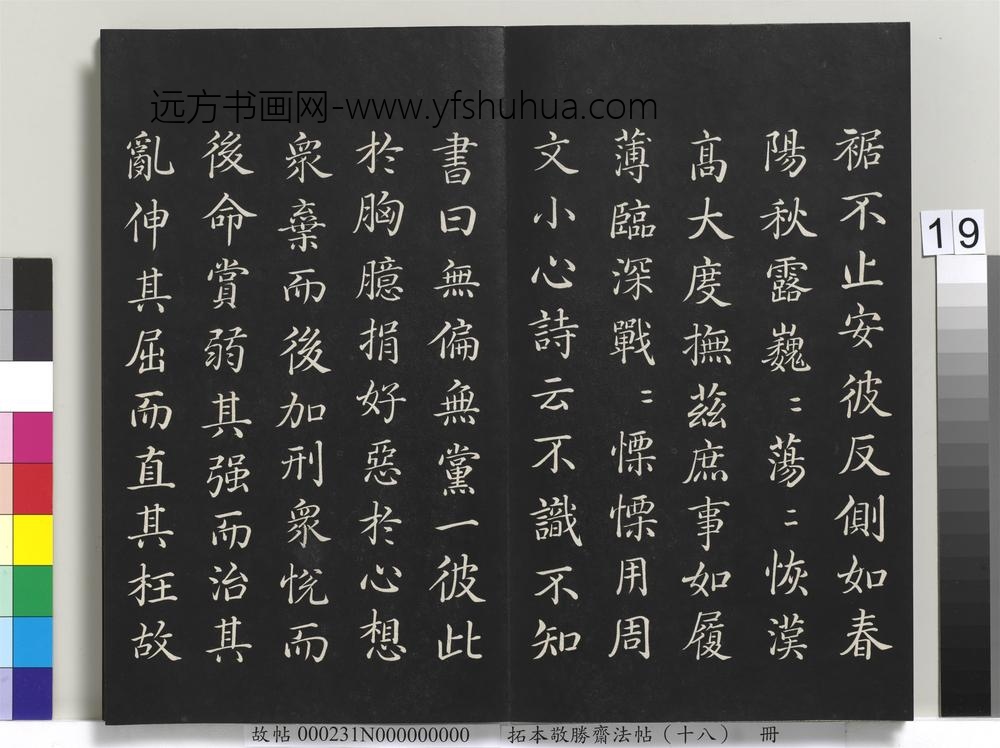 远方书画网-www.yfshuhua.com
裾不止安彼反側如春
陽秋露巍〻蕩〻恢漠
髙大度撫茲庶事如履
薄臨深戰〻慄慄用周
文小心詩云不識不知
書曰無偏無黨一彼此
於胸臆捐好惡於心想
衆棄而後加刑衆悅而
後命賞弱其强而治其
亂伸其屈而直其枉故
19
故帖 000231N000000000
拓本敬勝齋法帖（十八） 冊